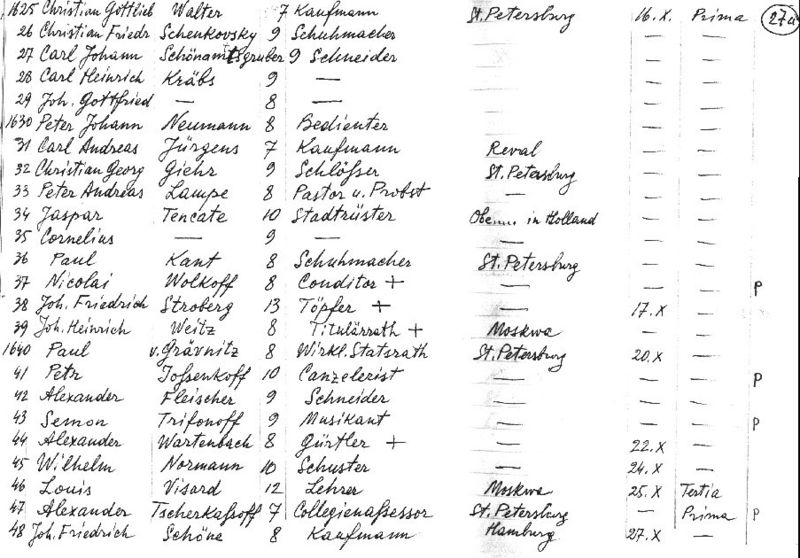 1625 Christian Gottlieb Walter 7 Kaufmann St. Petersburg 16.X. Prima 27a
26 Christian Friedr Schenkovsky 9 Schuhmacher — — —
27 Carl Johann Schönamtsgruber 9 Schneider — — —
28 Carl Heinrich Kräbs 9 — — — —
29 Joh. Gottfried — 8 — — — —
1630 Peter Johann Neumann 8 Bedienter — — —
31 Carl Andreas Jürgens 7 Kaufmann Reval — —
32 Christian Georg Giehr 9 Schlößer St. Petersburg — —
33 Peter Andreas Lampe 8 Pastor u. Probst — — —
34 Jaspar Tencate 10 Stadtrüster in Holland — —
35 Cornelius — 9 — — — —
36 Paul Kant 8 Schuhmacher St. Petersburg — —
37 Nicolai Wolkoff 8 Conditor + — — — P
38 Joh. Friedrich Stroberg 13 Töpfer + — 17.X —
39 Joh. Heinrich Weitz 8 Titulärrath + Moskwa — —
1640 Paul v. Grävnitz 8 Wirkl. Statsrath St. Petersburg 20.X —
41 Petr Joßenkoff 10 Canzelerist — — — P
42 Alexander Fleischer 9 Schneider — — —
43 Semon Trifonoff 9 Musikant — — — P
44 Alexander Wartenbach 8 Gürtler + — 22.X —
45 Wilhelm Normann 10 Schuster — 24.X —
46 Louis Visard 12 Lehrer Moskwa 25.X Tertia
47 Alexander Tscherkaßoff 7 Collegienaßessor St. Petersburg — Prima P
48 Joh. Friedrich Schöne 8 Kaufmann Hamburg 27.X —